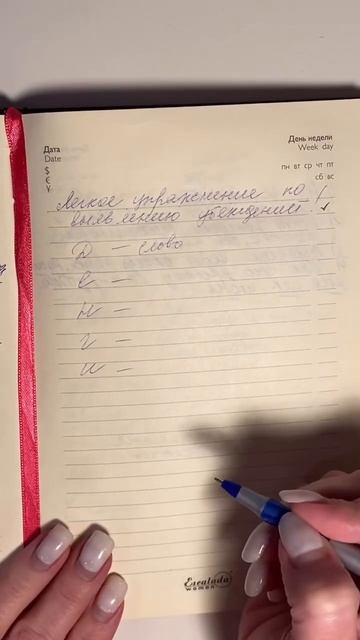 Дата
Date
$
€
¥
День недели
Week day
пн вт ср чт пт
сб вс
Легкое упражнение по
выявлению убеждений!
Д – слово
Е –
Н –
Ь –
Г –
И –
Escalada
women